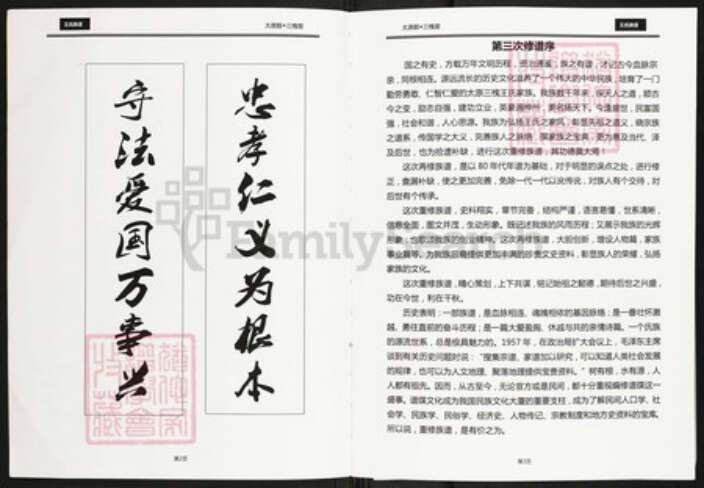 王氏族谱
太原郡•三槐堂
忠孝仁义为根本
守法爱国万事兴
第2页
太原郡•三槐堂
王氏族谱
第三次修谱序
国之有史，方载万年文明历程，资治通鉴，族之有谱，才记古今血脉宗
亲，同根相连。源远流长的历史文化滋养了一个伟大的中华民族，培育了一门
勤劳勇敢、仁智仁爱的太原三槐王氏家族。我族数千年来，探天人之道，顺古
今之变，励志自强，建功立业，英豪遍神州，美名扬天下。今逢盛世，民富国
强，社会和谐，人心思源。我族为弘扬王氏之家风，彰显先祖之道义，晓宗族
之道系，传国学之大义，完善族人之脉络，撰家族之宝典，更为惠及当代、泽
及后世，也为拾遗补缺，进行这次重修族谱，其功德莫大焉！
这次再修族谱，是以 80 年代年谱为基础，对于明显的误点之处，进行修
正，查漏补缺，使之更加完善，免除一代一代以讹传讹，对族人有个交待，对
后世有个传承。
这次重修族谱，史料翔实，章节完备，结构严谨，语言易懂，世系清晰，
信息全面，图文并茂，生动形象。既记述我族的风雨历程；又展示我族的光辉
形象；也歌颂我族的创业精神。这次再修族谱，大胆创新，增设人物篇，家族
事业篇等。为我族后裔提供更加丰满的珍贵文史资料，彰显族人的荣耀，弘扬
家族的文化。
这次重修族谱，精心策划，上下共谋，铭记始祖之懿德，期待后世之兴盛，
功在今世，利在千秋。
历史表明：一部族谱，是血脉相连、魂魄相依的基因脉络；是一番壮怀激
越、勇往直前的奋斗历程；是一篇大爱盈胸、休戚与共的亲情诗篇。一个氏族
的源流世系，总是极具魅力的。1957 年，在政治局扩大会议上，毛泽东主席
谈到有关历史问题时说：“搜集宗谱、家谱加以研究，可以知道人类社会发展
的规律，也可以为人文地理、聚落地理提供宝贵资料。”树有根，水有源，人
人都有祖先。因而，从古至今，无论官方或是民间，都十分重视编修谱牒这一
盛事。谱牒文化成为我国民族文化大厦的重要支柱，成为了解民间人口学、社
会学、民族学、民俗学、经济史、人物传记、宗教制度和地方史资料的宝库。
所以说，重修族谱，是有价之为。
第3页
FamilySearch